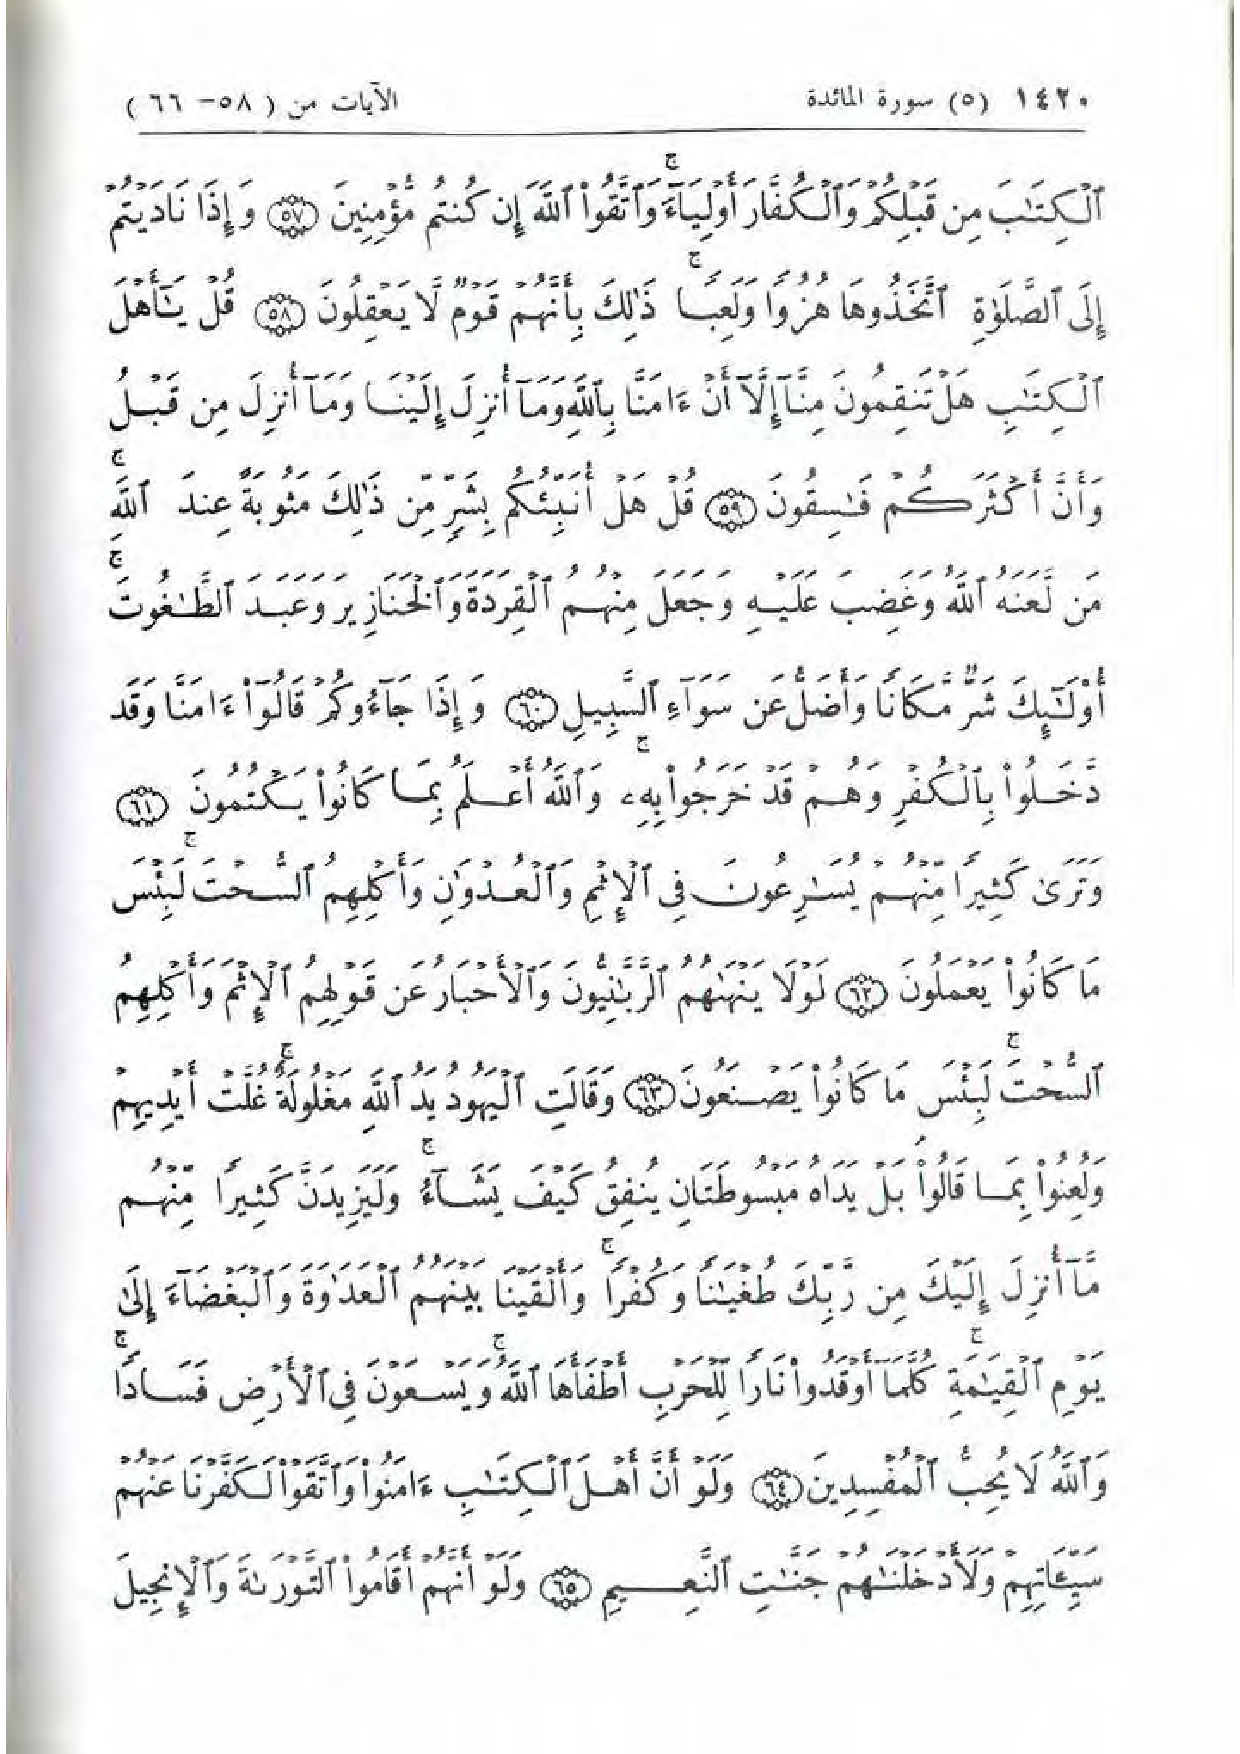 ١٤٢٠ (٥) سورة المائدة الآيات من ( ٥٨- ٦٦ )
ٱلْكِتَٰبَ مِن قَبْلِكُمْ وَٱلْكُفَّارَ أَوْلِيَآءَ ۚ وَٱتَّقُوا۟ ٱللَّهَ إِن كُنتُم مُّؤْمِنِينَ ٥٧ وَإِذَا نَادَيْتُمْ
إِلَى ٱلصَّلَوٰةِ ٱتَّخَذُوهَا هُزُوًا وَلَعِبًا ۚ ذَٰلِكَ بِأَنَّهُمْ قَوْمٌ لَّا يَعْقِلُونَ ٥٨ قُلْ يَٰٓأَهْلَ
ٱلْكِتَٰبِ هَلْ تَنقِمُونَ مِنَّآ إِلَّآ أَنْ ءَامَنَّا بِٱللَّهِ وَمَآ أُنزِلَ إِلَيْنَا وَمَآ أُنزِلَ مِن قَبْلُ
وَأَنَّ أَكْثَرَكُمْ فَٰسِقُونَ ٥٩ قُلْ هَلْ أُنَبِّئُكُم بِشَرٍّ مِّن ذَٰلِكَ مَثُوبَةً عِندَ ٱللَّهِ ۚ
مَن لَّعَنَهُ ٱللَّهُ وَغَضِبَ عَلَيْهِ وَجَعَلَ مِنْهُمُ ٱلْقِرَدَةَ وَٱلْخَنَازِيرَ وَعَبَدَ ٱلطَّٰغُوتَ ۚ
أُو۟لَٰٓئِكَ شَرٌّ مَّكَانًا وَأَضَلُّ عَن سَوَآءِ ٱلسَّبِيلِ ٦٠ وَإِذَا جَآءُوكُمْ قَالُوٓا۟ ءَامَنَّا وَقَد
دَّخَلُوا۟ بِٱلْكُفْرِ وَهُمْ قَدْ خَرَجُوا۟ بِهِۦ ۚ وَٱللَّهُ أَعْلَمُ بِمَا كَانُوا۟ يَكْتُمُونَ ٦١
وَتَرَىٰ كَثِيرًا مِّنْهُمْ يُسَٰرِعُونَ فِى ٱلْإِثْمِ وَٱلْعُدْوَٰنِ وَأَكْلِهِمُ ٱلسُّحْتَ ۚ لَبِئْسَ
مَا كَانُوا۟ يَعْمَلُونَ ٦٢ لَوْلَا يَنْهَىٰهُمُ ٱلرَّبَّٰنِيُّونَ وَٱلْأَحْبَارُ عَن قَوْلِهِمُ ٱلْإِثْمَ وَأَكْلِهِمُ
ٱلسُّحْتَ ۚ لَبِئْسَ مَا كَانُوا۟ يَصْنَعُونَ ٦٣ وَقَالَتِ ٱلْيَهُودُ يَدُ ٱللَّهِ مَغْلُولَةٌ ۚ غُلَّتْ أَيْدِيهِمْ
وَلُعِنُوا۟ بِمَا قَالُوا۟ ۘ بَلْ يَدَاهُ مَبْسُوطَتَانِ يُنفِقُ كَيْفَ يَشَآءُ ۚ وَلَيَزِيدَنَّ كَثِيرًا مِّنْهُم
مَّآ أُنزِلَ إِلَيْكَ مِن رَّبِّكَ طُغْيَٰنًا وَكُفْرًا ۚ وَأَلْقَيْنَا بَيْنَهُمُ ٱلْعَدَٰوَةَ وَٱلْبَغْضَآءَ إِلَىٰ
يَوْمِ ٱلْقِيَٰمَةِ ۚ كُلَّمَآ أَوْقَدُوا۟ نَارًا لِّلْحَرْبِ أَطْفَأَهَا ٱللَّهُ ۚ وَيَسْعَوْنَ فِى ٱلْأَرْضِ فَسَادًا ۚ
وَٱللَّهُ لَا يُحِبُّ ٱلْمُفْسِدِينَ ٦٤ وَلَوْ أَنَّ أَهْلَ ٱلْكِتَٰبِ ءَامَنُوا۟ وَٱتَّقَوْا۟ لَكَفَّرْنَا عَنْهُمْ
سَيِّـَٔاتِهِمْ وَلَأَدْخَلْنَٰهُمْ جَنَّٰتِ ٱلنَّعِيمِ ٦٥ وَلَوْ أَنَّهُمْ أَقَامُوا۟ ٱلتَّوْرَىٰةَ وَٱلْإِنجِيلَ